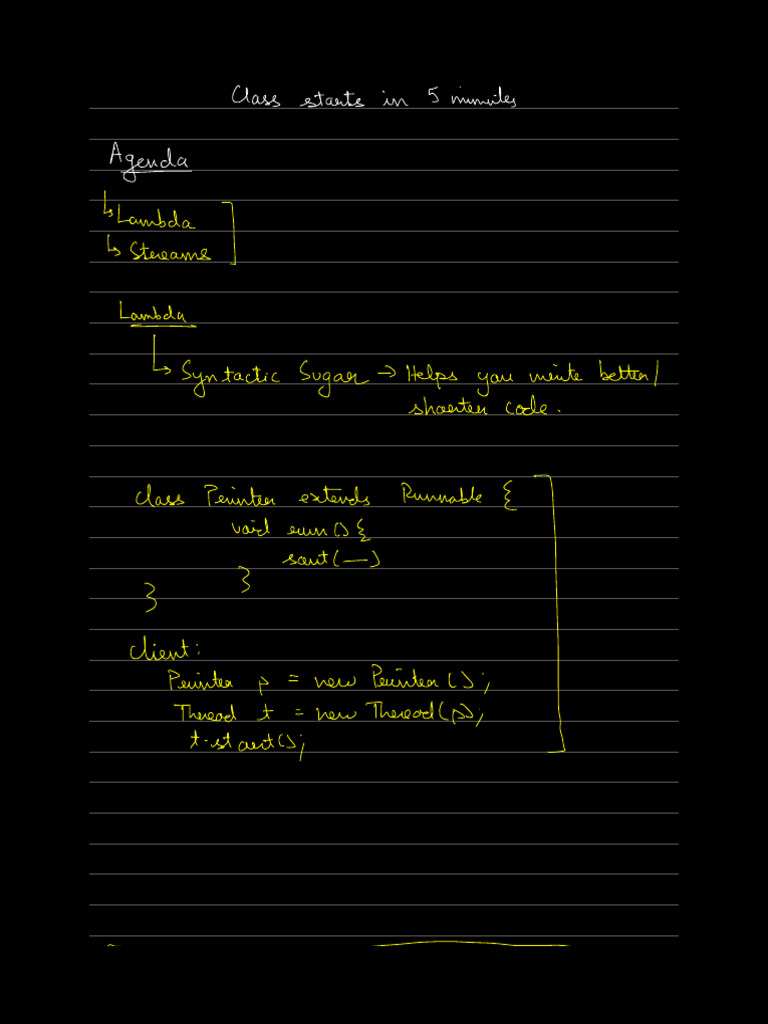 Class starts in 5 minutes
Agenda
↳ Lambda
↳ Streams
Lambda
↳ Syntactic Sugar → Helps you write better/
shorter code.
class Printer extends Runnable {
void run() {
sout(—)
}
}
Client:
Printer p = new Printer();
Thread t = new Thread(p);
t.start();